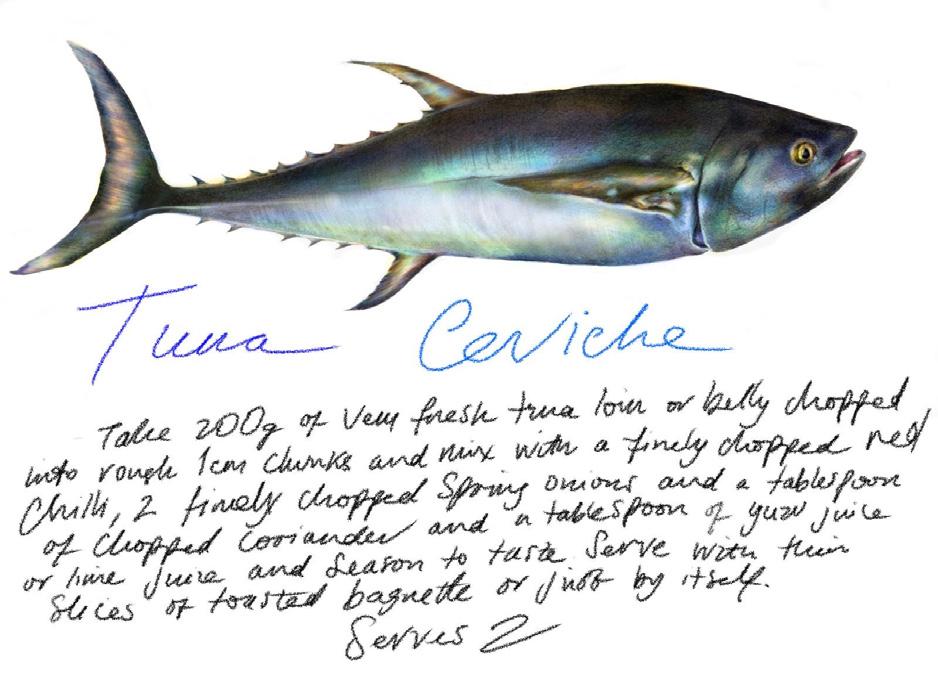 Tuna Ceviche
Take 200g of Very fresh tuna loin or belly chopped
into rough 1cm Chunks and mix with a finely chopped red
Chilli, 2 finely chopped Spring onions and a tablespoon
of chopped Coriander and a tablespoon of yuzu juice
or lime juice and Season to taste Serve with thin
Slices of toasted baguette or just by itself.
Serves 2